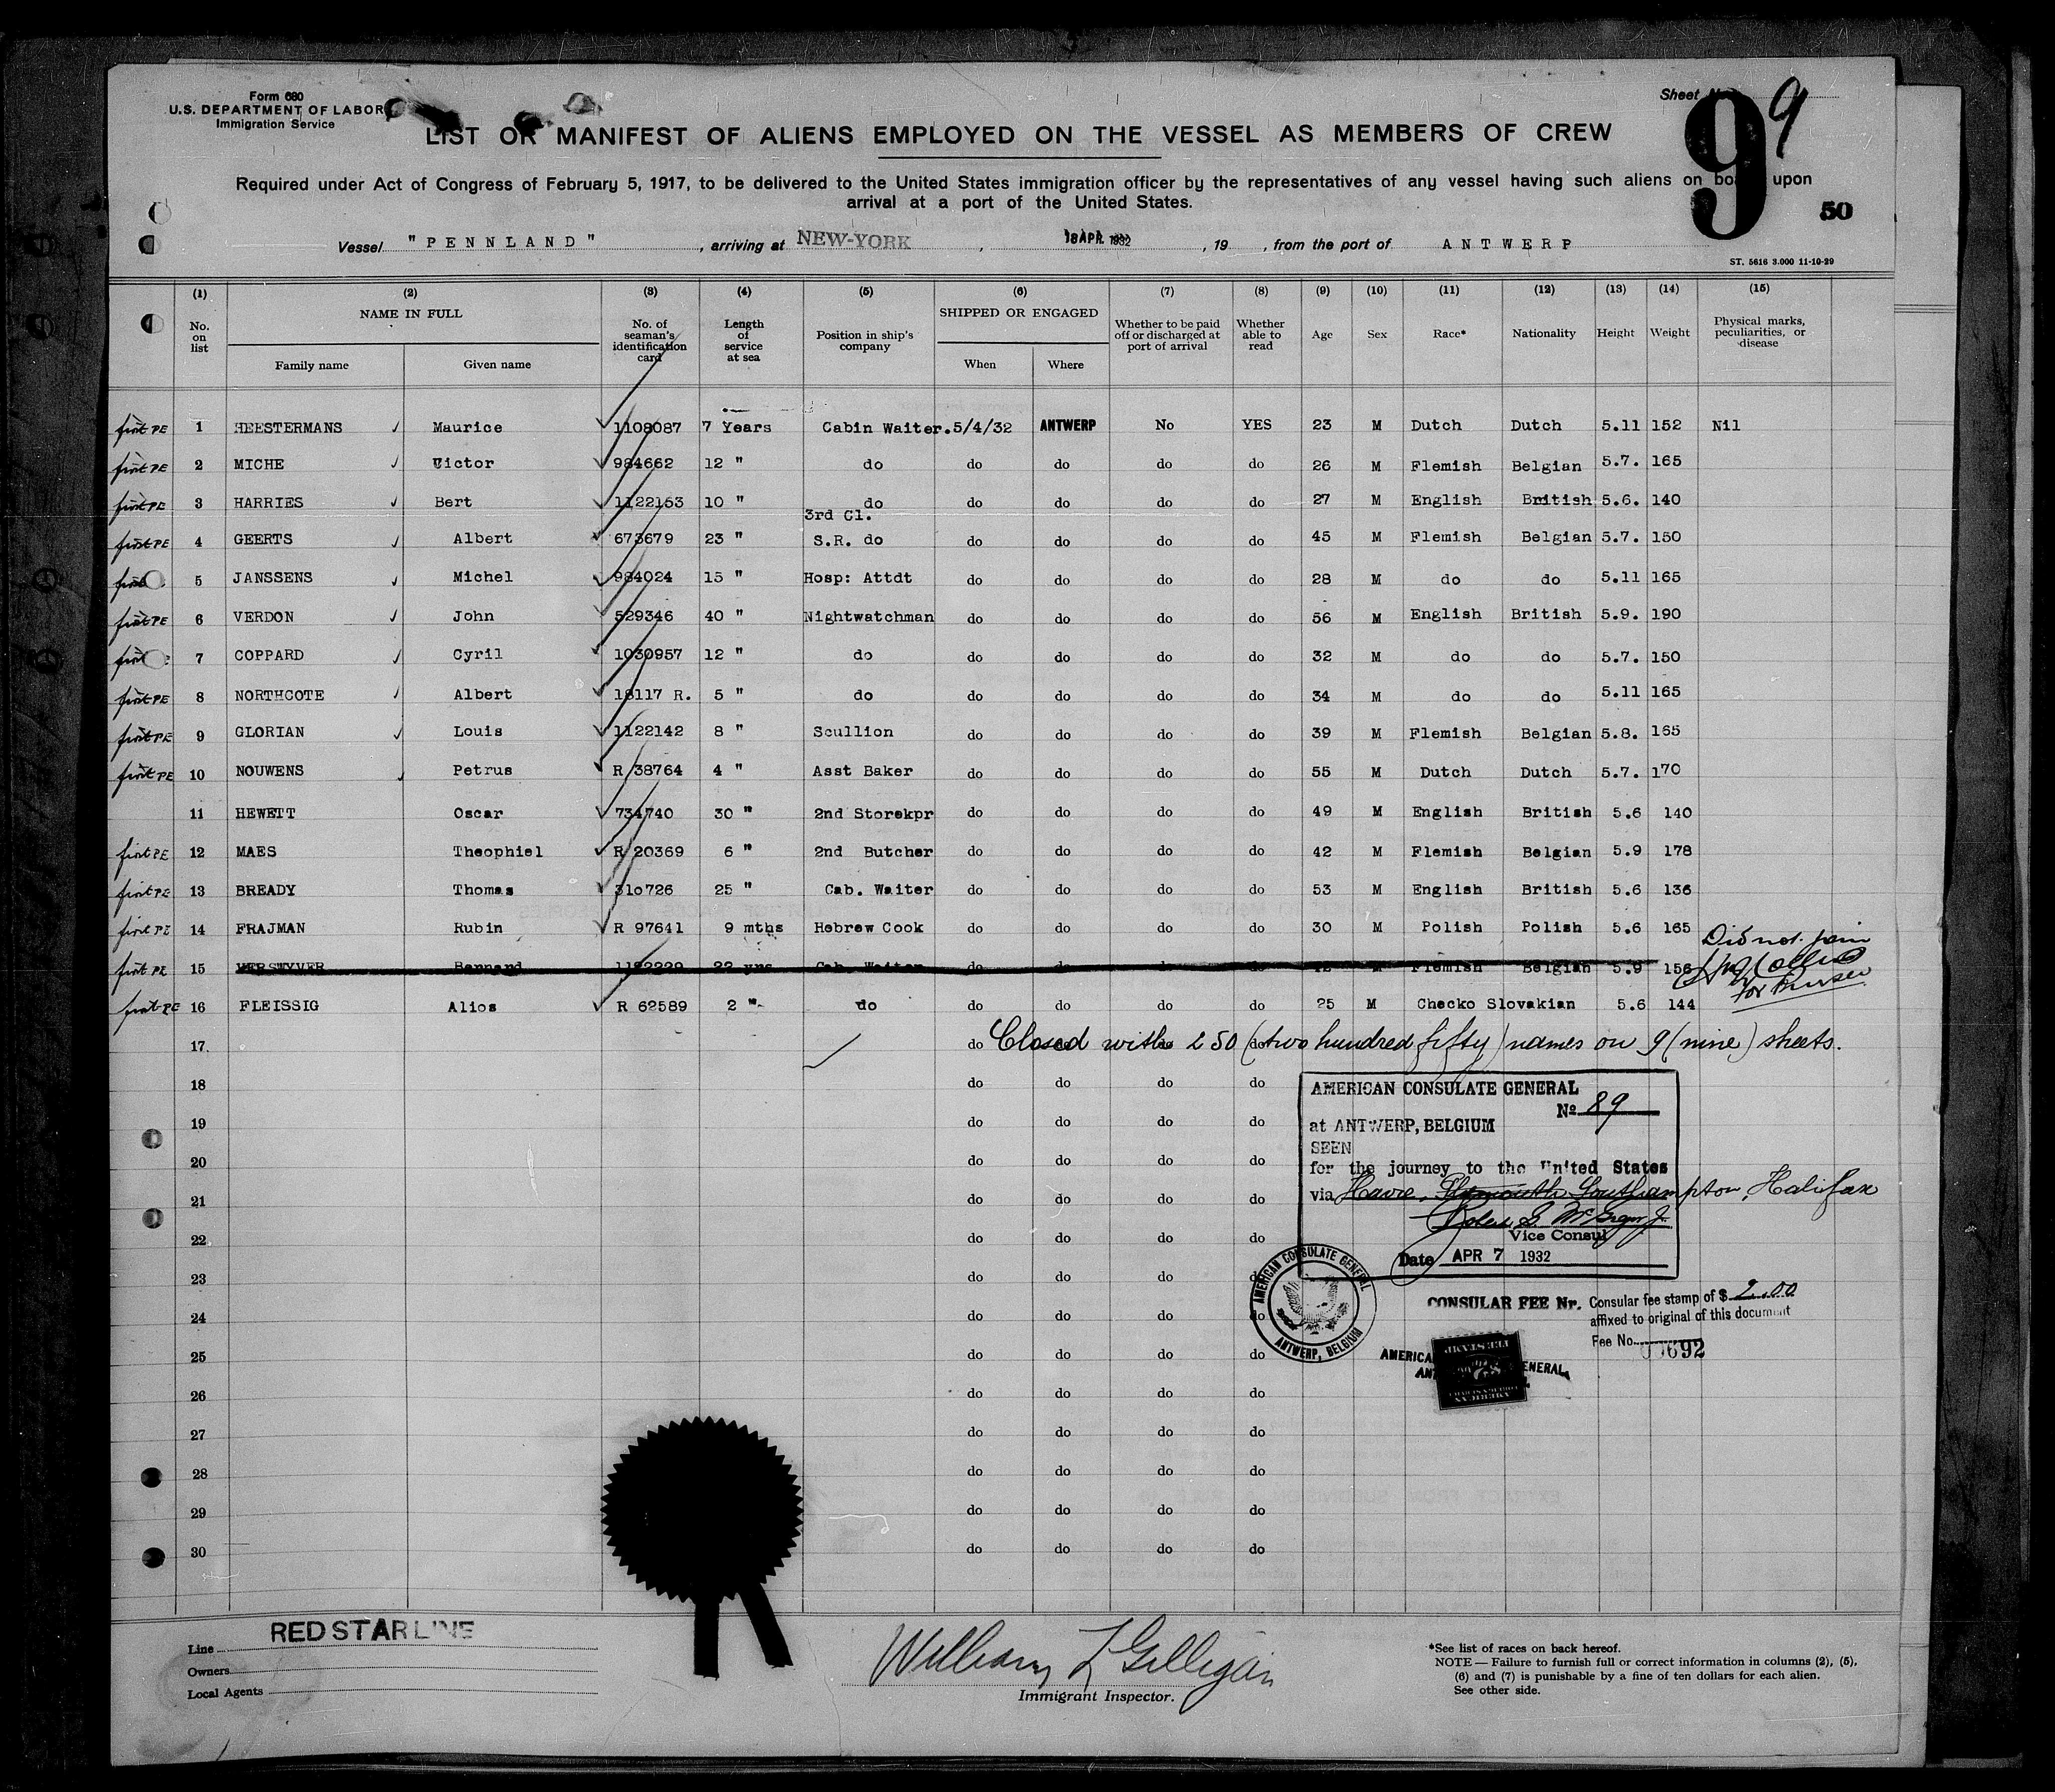 Form 680
U.S. DEPARTMENT OF LABOR
Immigration Service
Sheet
9 9
LIST OR MANIFEST OF ALIENS EMPLOYED ON THE VESSEL AS MEMBERS OF CREW
Required under Act of Congress of February 5, 1917, to be delivered to the United States immigration officer by the representatives of any vessel having such aliens on board upon
arrival at a port of the United States.
50
Vessel "PENNLAND", arriving at NEW-YORK, 18 APR. 1932, 19 , from the port of ANTWERP
ST. 5616 3.000 11-10-29
(1) (2) (3) (4) (5) (6) (7) (8) (9) (10) (11) (12) (13) (14) (15)
No. on list NAME IN FULL Family name Given name No. of seaman's identification card Length of service at sea Position in ship's company SHIPPED OR ENGAGED When Where Whether to be paid off or discharged at port of arrival Whether able to read Age Sex Race* Nationality Height Weight Physical marks, peculiarities, or disease
first PE 1 HEESTERMANS Maurice 1108087 7 Years Cabin Waiter. 5/4/32 ANTWERP No YES 23 M Dutch Dutch 5.11 152 Nil
first PE 2 MICHE Victor 984662 12 " do do do do do 26 M Flemish Belgian 5.7. 165
first PE 3 HARRIES Bert 1122153 10 " do do do do do 27 M English British 5.6. 140
first PE 4 GEERTS Albert 673679 23 " 3rd Cl. S.R. do do do do do 45 M Flemish Belgian 5.7. 150
first 5 JANSSENS Michel 984024 15 " Hosp: Attdt do do do do 28 M do do 5.11 165
first PE 6 VERDON John 529346 40 " Nightwatchman do do do do 56 M English British 5.9. 190
first 7 COPPARD Cyril 1030957 12 " do do do do do 32 M do do 5.7. 150
first PE 8 NORTHCOTE Albert 18117 R. 5 " do do do do do 34 M do do 5.11 165
first PE 9 GLORIAN Louis 1122142 8 " Scullion do do do do 39 M Flemish Belgian 5.8. 165
first PE 10 NOUWENS Petrus R 38764 4 " Asst Baker do do do do 55 M Dutch Dutch 5.7. 170
11 HEWETT Oscar 734740 30 " 2nd Storekpr do do do do 49 M English British 5.6 140
first PE 12 MAES Theophiel R 20369 6 " 2nd Butcher do do do do 42 M Flemish Belgian 5.9 178
first PE 13 BREADY Thomas 310726 25 " Cab. Waiter do do do do 53 M English British 5.6 136
first PE 14 FRAJMAN Rubin R 97641 9 mths Hebrew Cook do do do do 30 M Polish Polish 5.6 165
first PE 15 VERSWYVER Bernard 1122229 22 yrs Cab. Waiter do do do do 42 M Flemish Belgian 5.9 156 Did not join
for Purser
first PE 16 FLEISSIG Alios R 62589 2 " do do do do do 25 M Checko Slovakian 5.6 144
17 do do do do Closed with 250 (two hundred fifty) names on 9 (nine) sheets.
18 do do do do
19 do do do do
20 do do do do
21 do do do do
22 do do do do
23 do do do do
24 do do do do
25 do do do do
26 do do do do
27 do do do do
28 do do do do
29 do do do do
30 do do do do
AMERICAN CONSULATE GENERAL
No 89
at ANTWERP, BELGIUM
SEEN
for the journey to the United States
via Havre, Southampton, Halifax
Vice Consul
Date APR 7 1932
AMERICAN CONSULATE GENERAL
ANTWERP, BELGIUM
CONSULAR FEE Nr.
Consular fee stamp of $ 2.00
affixed to original of this document
Fee No. 00692
RED STAR LINE
Line
Owners
Local Agents
William L Gilligan
Immigrant Inspector.
*See list of races on back hereof.
NOTE — Failure to furnish full or correct information in columns (2), (5),
(6) and (7) is punishable by a fine of ten dollars for each alien.
See other side.